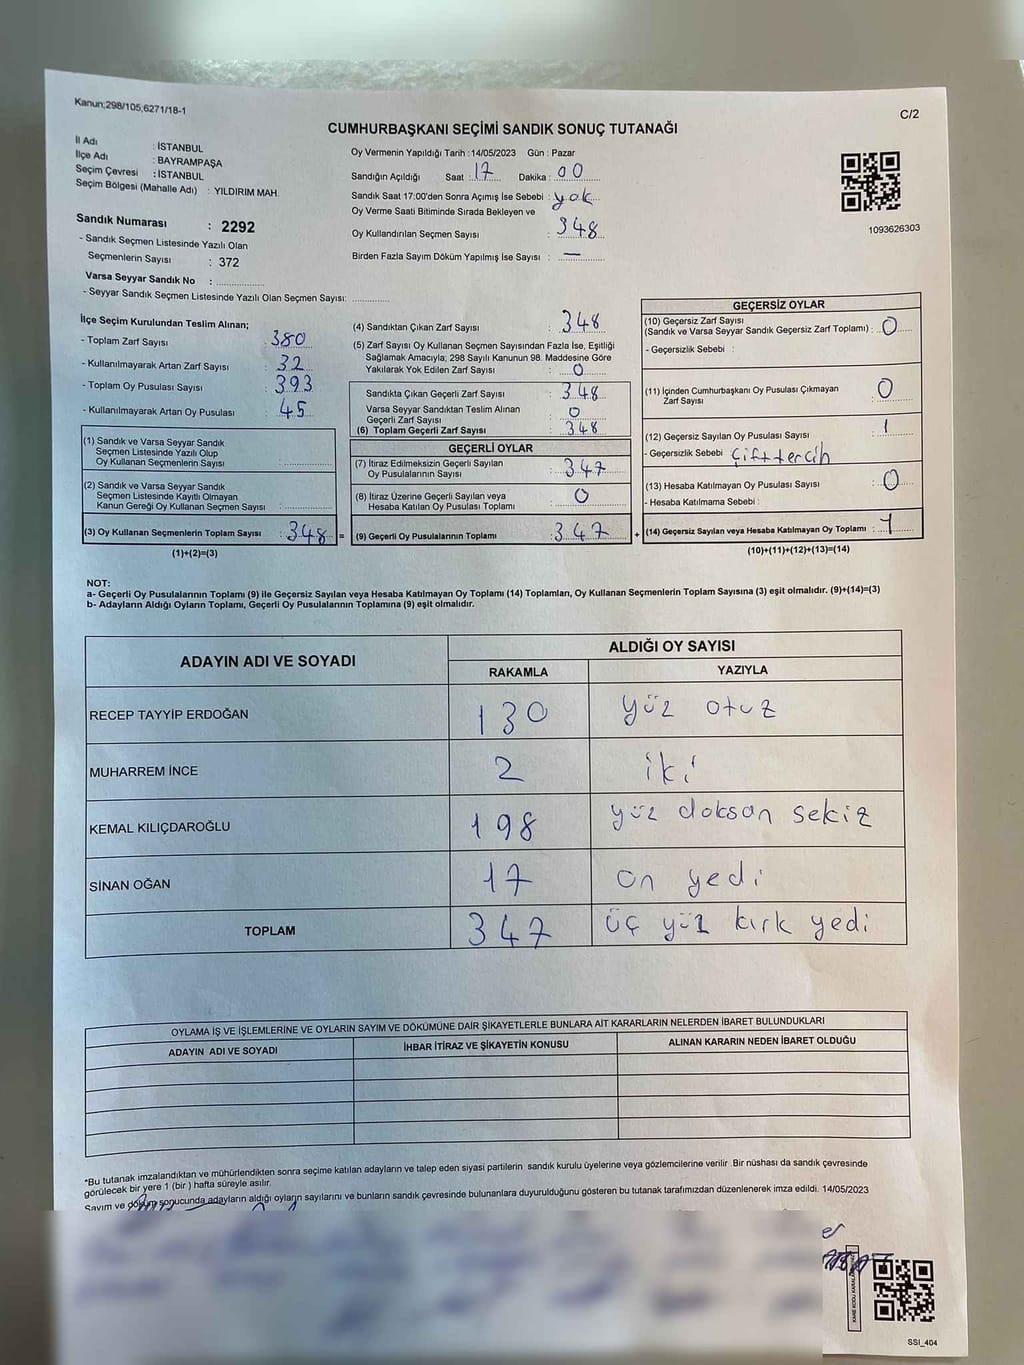 Kanun;298/105;6271/18-1
C/2
CUMHURBAŞKANI SEÇİMİ SANDIK SONUÇ TUTANAĞI
İl Adı : İSTANBUL
İlçe Adı : BAYRAMPAŞA
Seçim Çevresi : İSTANBUL
Seçim Bölgesi (Mahalle Adı) : YILDIRIM MAH.
Sandık Numarası : 2292
- Sandık Seçmen Listesinde Yazılı Olan
Seçmenlerin Sayısı : 372
Varsa Seyyar Sandık No :
- Seyyar Sandık Seçmen Listesinde Yazılı Olan Seçmen Sayısı:
Oy Vermenin Yapıldığı Tarih : 14/05/2023 Gün : Pazar
Sandığın Açıldığı Saat : 17 Dakika : 00
Sandık Saat 17:00'den Sonra Açımış İse Sebebi : yok
Oy Verme Saati Bitiminde Sırada Bekleyen ve
Oy Kullandırılan Seçmen Sayısı : 348
Birden Fazla Sayım Döküm Yapılmış İse Sayısı : —
1093626303
İlçe Seçim Kurulundan Teslim Alınan;
- Toplam Zarf Sayısı : 380
- Kullanılmayarak Artan Zarf Sayısı : 32
- Toplam Oy Pusulası Sayısı : 393
- Kullanılmayarak Artan Oy Pusulası : 45
(1) Sandık ve Varsa Seyyar Sandık
Seçmen Listesinde Yazılı Olup
Oy Kullanan Seçmenlerin Sayısı :
(2) Sandık ve Varsa Seyyar Sandık
Seçmen Listesinde Kayıtlı Olmayan
Kanun Gereği Oy Kullanan Seçmen Sayısı :
(3) Oy Kullanan Seçmenlerin Toplam Sayısı : 348 =
(1)+(2)=(3)
(4) Sandıktan Çıkan Zarf Sayısı : 348
(5) Zarf Sayısı Oy Kullanan Seçmen Sayısından Fazla İse, Eşitliği
Sağlamak Amacıyla; 298 Sayılı Kanunun 98. Maddesine Göre
Yakılarak Yok Edilen Zarf Sayısı : 0
Sandıkta Çıkan Geçerli Zarf Sayısı : 348
Varsa Seyyar Sandıktan Teslim Alınan
Geçerli Zarf Sayısı : 0
(6) Toplam Geçerli Zarf Sayısı : 348
GEÇERLİ OYLAR
(7) İtiraz Edilmeksizin Geçerli Sayılan
Oy Pusulalarının Sayısı : 347
(8) İtiraz Üzerine Geçerli Sayılan veya
Hesaba Katılan Oy Pusulası Toplamı : 0
(9) Geçerli Oy Pusulalarının Toplamı : 347 +
GEÇERSİZ OYLAR
(10) Geçersiz Zarf Sayısı
(Sandık ve Varsa Seyyar Sandık Geçersiz Zarf Toplamı) : 0
- Geçersizlik Sebebi :
(11) İçinden Cumhurbaşkanı Oy Pusulası Çıkmayan
Zarf Sayısı : 0
(12) Geçersiz Sayılan Oy Pusulası Sayısı : 1
- Geçersizlik Sebebi : Çift tercih
(13) Hesaba Katılmayan Oy Pusulası Sayısı : 0
- Hesaba Katılmama Sebebi :
(14) Geçersiz Sayılan veya Hesaba Katılmayan Oy Toplamı : 1
(10)+(11)+(12)+(13)=(14)
NOT:
a- Geçerli Oy Pusulalarının Toplamı (9) ile Geçersiz Sayılan veya Hesaba Katılmayan Oy Toplamı (14) Toplamları, Oy Kullanan Seçmenlerin Toplam Sayısına (3) eşit olmalıdır. (9)+(14)=(3)
b- Adayların Aldığı Oyların Toplamı, Geçerli Oy Pusulalarının Toplamına (9) eşit olmalıdır.
ADAYIN ADI VE SOYADI
ALDIĞI OY SAYISI
RAKAMLA YAZIYLA
RECEP TAYYİP ERDOĞAN 130 yüz otuz
MUHARREM İNCE 2 iki
KEMAL KILIÇDAROĞLU 198 yüz doksan sekiz
SİNAN OĞAN 17 on yedi
TOPLAM 347 üç yüz kırk yedi
OYLAMA İŞ VE İŞLEMLERİNE VE OYLARIN SAYIM VE DÖKÜMÜNE DAİR ŞİKAYETLERLE BUNLARA AİT KARARLARIN NELERDEN İBARET BULUNDUKLARI
ADAYIN ADI VE SOYADI İHBAR İTİRAZ VE ŞİKAYETİN KONUSU ALINAN KARARIN NEDEN İBARET OLDUĞU
*Bu tutanak imzalandıktan ve mühürlendikten sonra seçime katılan adayların ve talep eden siyasi partilerin sandık kurulu üyelerine veya gözlemcilerine verilir .Bir nüshası da sandık çevresinde
görülecek bir yere 1 (bir ) hafta süreyle asılır.
Sayım ve döküm sonucunda adayların aldığı oyların sayılarını ve bunların sandık çevresinde bulunanlara duyurulduğunu gösteren bu tutanak tarafımızdan düzenlenerek imza edildi. 14/05/2023
SSI_404